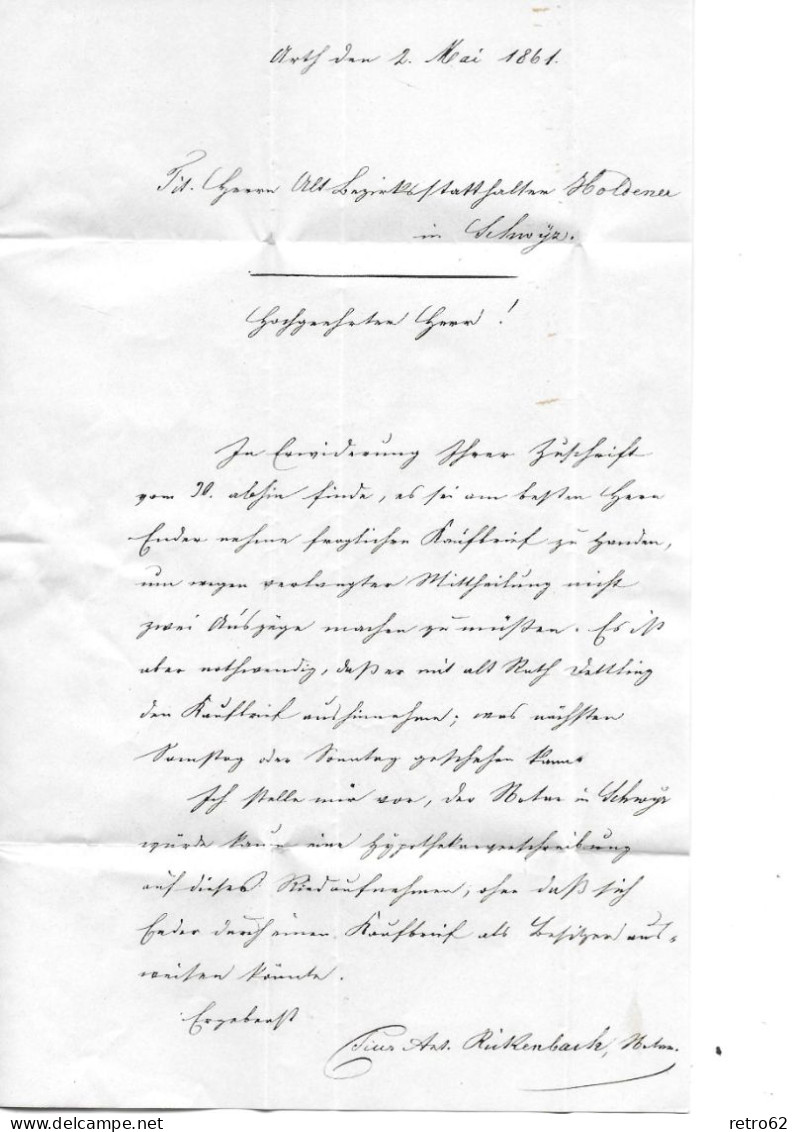 Arth den 2. Mai 1861.
Tit. Herrn Alt Bezirksstatthalter Holdener
in Schwÿz.
Hochgeehrter Herr!
In Erwiderung Ihrer Zuschrift
vom 30. abhin finde, es sei am besten Herr
Ender nehme fraglichen Kaufbrief zu Handen,
um wegen verlangter Mittheilung nicht
zwei Auszüge machen zu müßen. Es ist
aber nothwendig, daß er mit alt Rath Dettling
den Kaufbrief aushinnehme; was nächsten
Samstag oder Sonntag geschehen kann.
Ich stelle mir vor, der Notar in Schwÿz
würde kaum eine Hÿpothekarverschreibung
auf dieses Ried aufnehmen, ohne daß sich
Ender durch einen Kaufbrief als Besitzer aus-
weisen könnte.
Ergebenst
Pius Ant. Rickenbach, Notar.
retro62